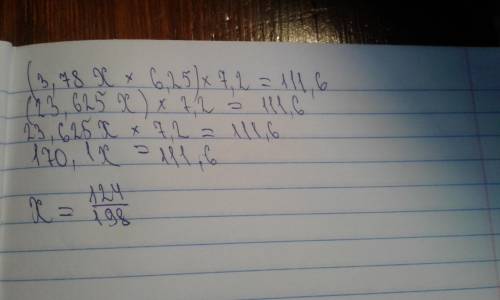 (3,78 X × 6,25) × 7,2 = 111,6
(23,625 X) × 7,2 = 111,6
23,625X × 7,2 = 111,6
170,1X = 111,6
X = 124/198